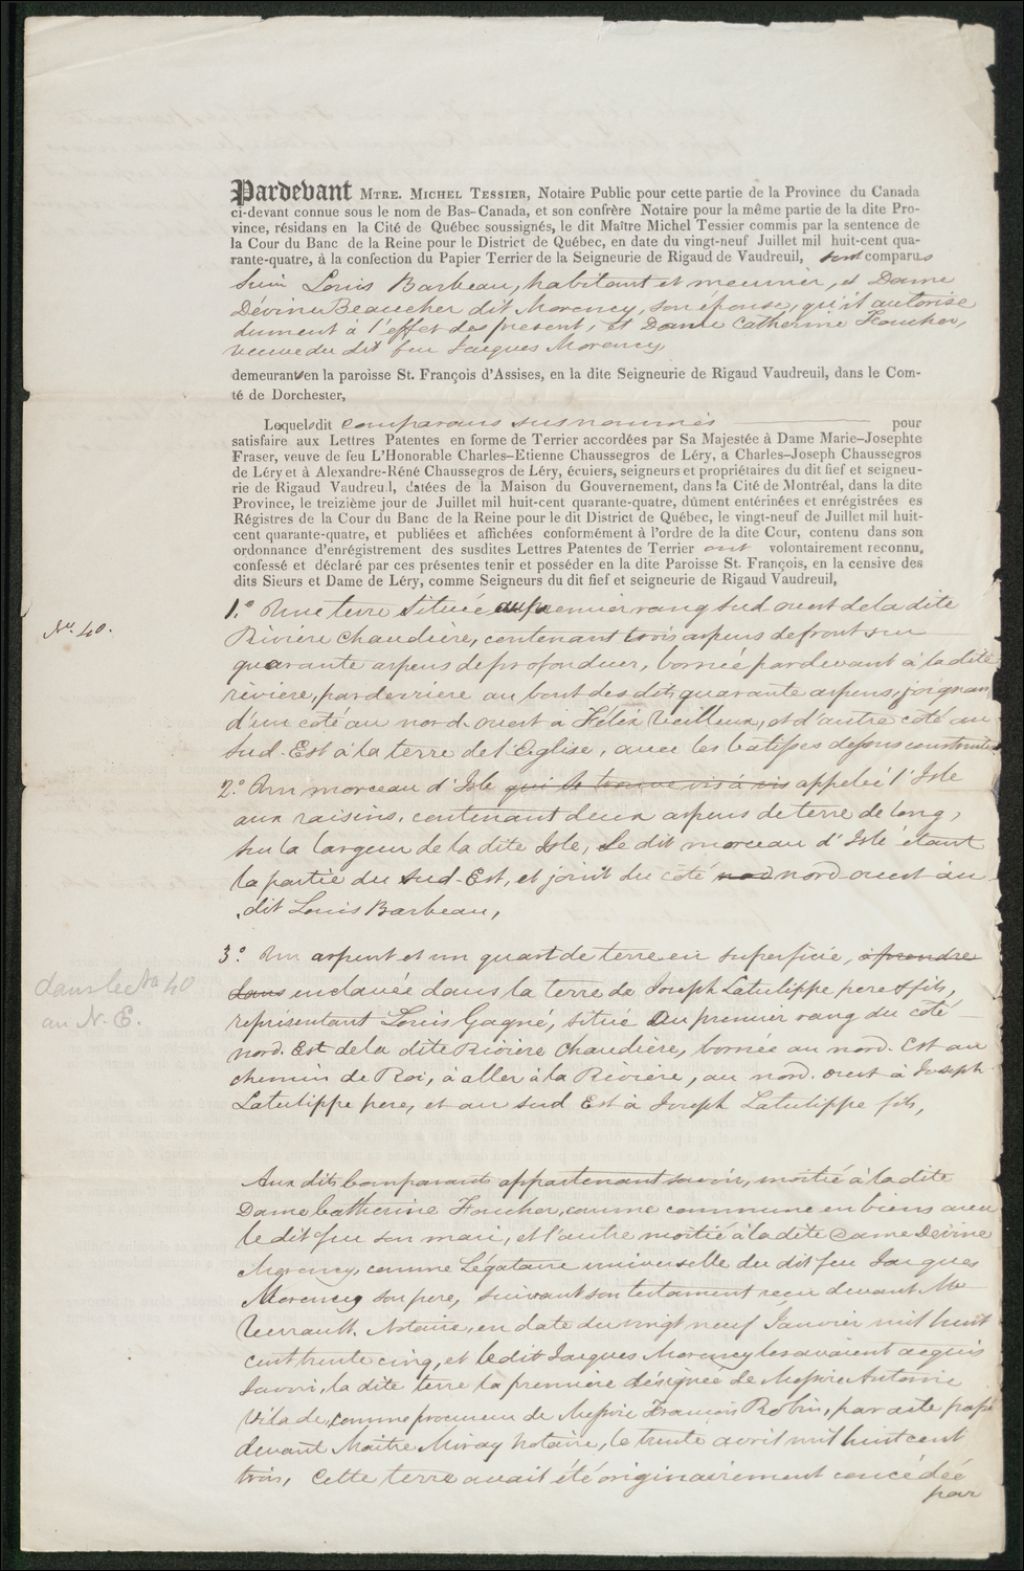 Pardevant MTRE. MICHEL TESSIER, Notaire Public pour cette partie de la Province du Canada
ci-devant connue sous le nom de Bas-Canada, et son confrère Notaire pour la même partie de la dite Pro-
vince, résidans en la Cité de Québec soussignés, le dit Maître Michel Tessier commis par la sentence de
la Cour du Banc de la Reine pour le District de Québec, en date du vingt-neuf Juillet mil huit-cent qua-
rante-quatre, à la confection du Papier Terrier de la Seigneurie de Rigaud de Vaudreuil, sont comparus
Louis Barbeau, habitant et meunier, et Dame
Dévine Beaucher dit Morency, son épouse, qu'il autorise
dument à l'effet des present, et Dame Catherine Foucher,
veuve du dit feu Jacques Morency
demeurant en la paroisse St. François d'Assises, en la dite Seigneurie de Rigaud Vaudreuil, dans le Com-
té de Dorchester,
Lequels dit comparans susnommés pour
satisfaire aux Lettres Patentes en forme de Terrier accordées par Sa Majestée à Dame Marie-Josephte
Fraser, veuve de feu L'Honorable Charles-Etienne Chaussegros de Léry, a Charles-Joseph Chaussegros
de Léry et à Alexandre-Réné Chaussegros de Léry, écuiers, seigneurs et propriétaires du dit fief et seigneu-
rie de Rigaud Vaudreuil, datées de la Maison du Gouvernement, dans la Cité de Montréal, dans la dite
Province, le treizième jour de Juillet mil huit-cent quarante-quatre, dûment entérinées et enrégistrées es
Régistres de la Cour du Banc de la Reine pour le dit District de Québec, le vingt-neuf de Juillet mil huit-
cent quarante-quatre, et publiées et affichées conformément à l'ordre de la dite Cour, contenu dans son
ordonnance d'enrégistrement des susdites Lettres Patentes de Terrier ont volontairement reconnu,
confessé et déclaré par ces présentes tenir et posséder en la dite Paroisse St. François, en la censive des
dits Sieurs et Dame de Léry, comme Seigneurs du dit fief et seigneurie de Rigaud Vaudreuil,
1.° Une terre située au premier rang sud ouest de la dite
No. 40.
Rivière Chaudière, contenant trois arpens de front sur
quarante arpens de profondeur, bornée par devant à la dite
rivière, par derrière au bout des dits quarante arpens, joignan
d'un côté au nord-ouest à Félix Veilleux, et d'autre côté au
sud-Est à la terre de l'Eglise, avec les batisses dessus construites.
2.° Un morceau d'Isle qui se trouve vis à vis appelée l'Isle
aux raisins, contenant deux arpens de terre de long,
sur la largeur de la dite Isle, Le dit morceau d'Isle étant
la partie du sud-Est, et joint du côté nord nord ouest au
dit Louis Barbeau,
3.° Un arpent et un quart de terre en superficie, à prendre
dans enclavée dans la terre de Joseph Latulippe pere & fils,
dans le No 40
au N. E.
représentant Louis Gagné, situé au premier rang du côté
nord. Est de la dite Rivière Chaudière, bornée au nord. Est au
chemin de Roi, à aller à la Rivière, au nord. ouest à Joseph
Latulippe pere, et au sud Est à Joseph Latulippe fils,
Aux dits Comparants appartenant savoir, moitié à la dite
Dame Catherine Foucher, comme commune en biens avec
le dit feu son mari, et l'autre moitié à la dite Dame Dévine
Morency, comme Légataire universelle du dit feu Jacques
Morency son pere, suivant son testament reçu devant Mre
Verrault, Notaire, en date du vingt neuf Janvier mil huit
cent trente cinq, et le dit Jacques Morency les avaient acquis
Savoir, la dite terre la première désignée de Messire Antoine
Vilade, comme procureur de Messire François Robin, par acte passé
devant Maitre Miray Notaire, le trente avril mil huit cent
trois, Cette terre avait été originairement concédée
par